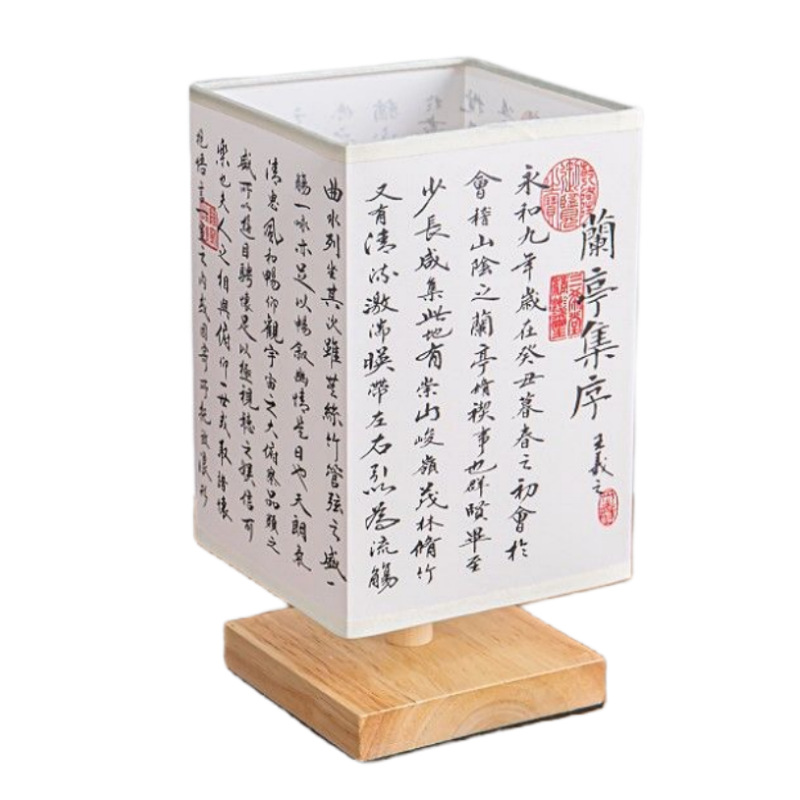 蘭亭集序
王羲之
永和九年歲在癸丑暮春之初會於
會稽山陰之蘭亭脩禊事也群賢畢至
少長咸集此地有崇山峻嶺茂林脩竹
又有清流激湍暎帶左右引以為流觴
曲水列坐其次雖無絲竹管弦之盛一
觴一詠亦足以暢敘幽情是日也天朗氣
清惠風和暢仰觀宇宙之大俯察品類之
盛所以遊目騁懷足以極視聽之娛信可
樂也夫人之相與俯仰一世或取諸懷
抱悟言一室之內或因寄所託放浪形